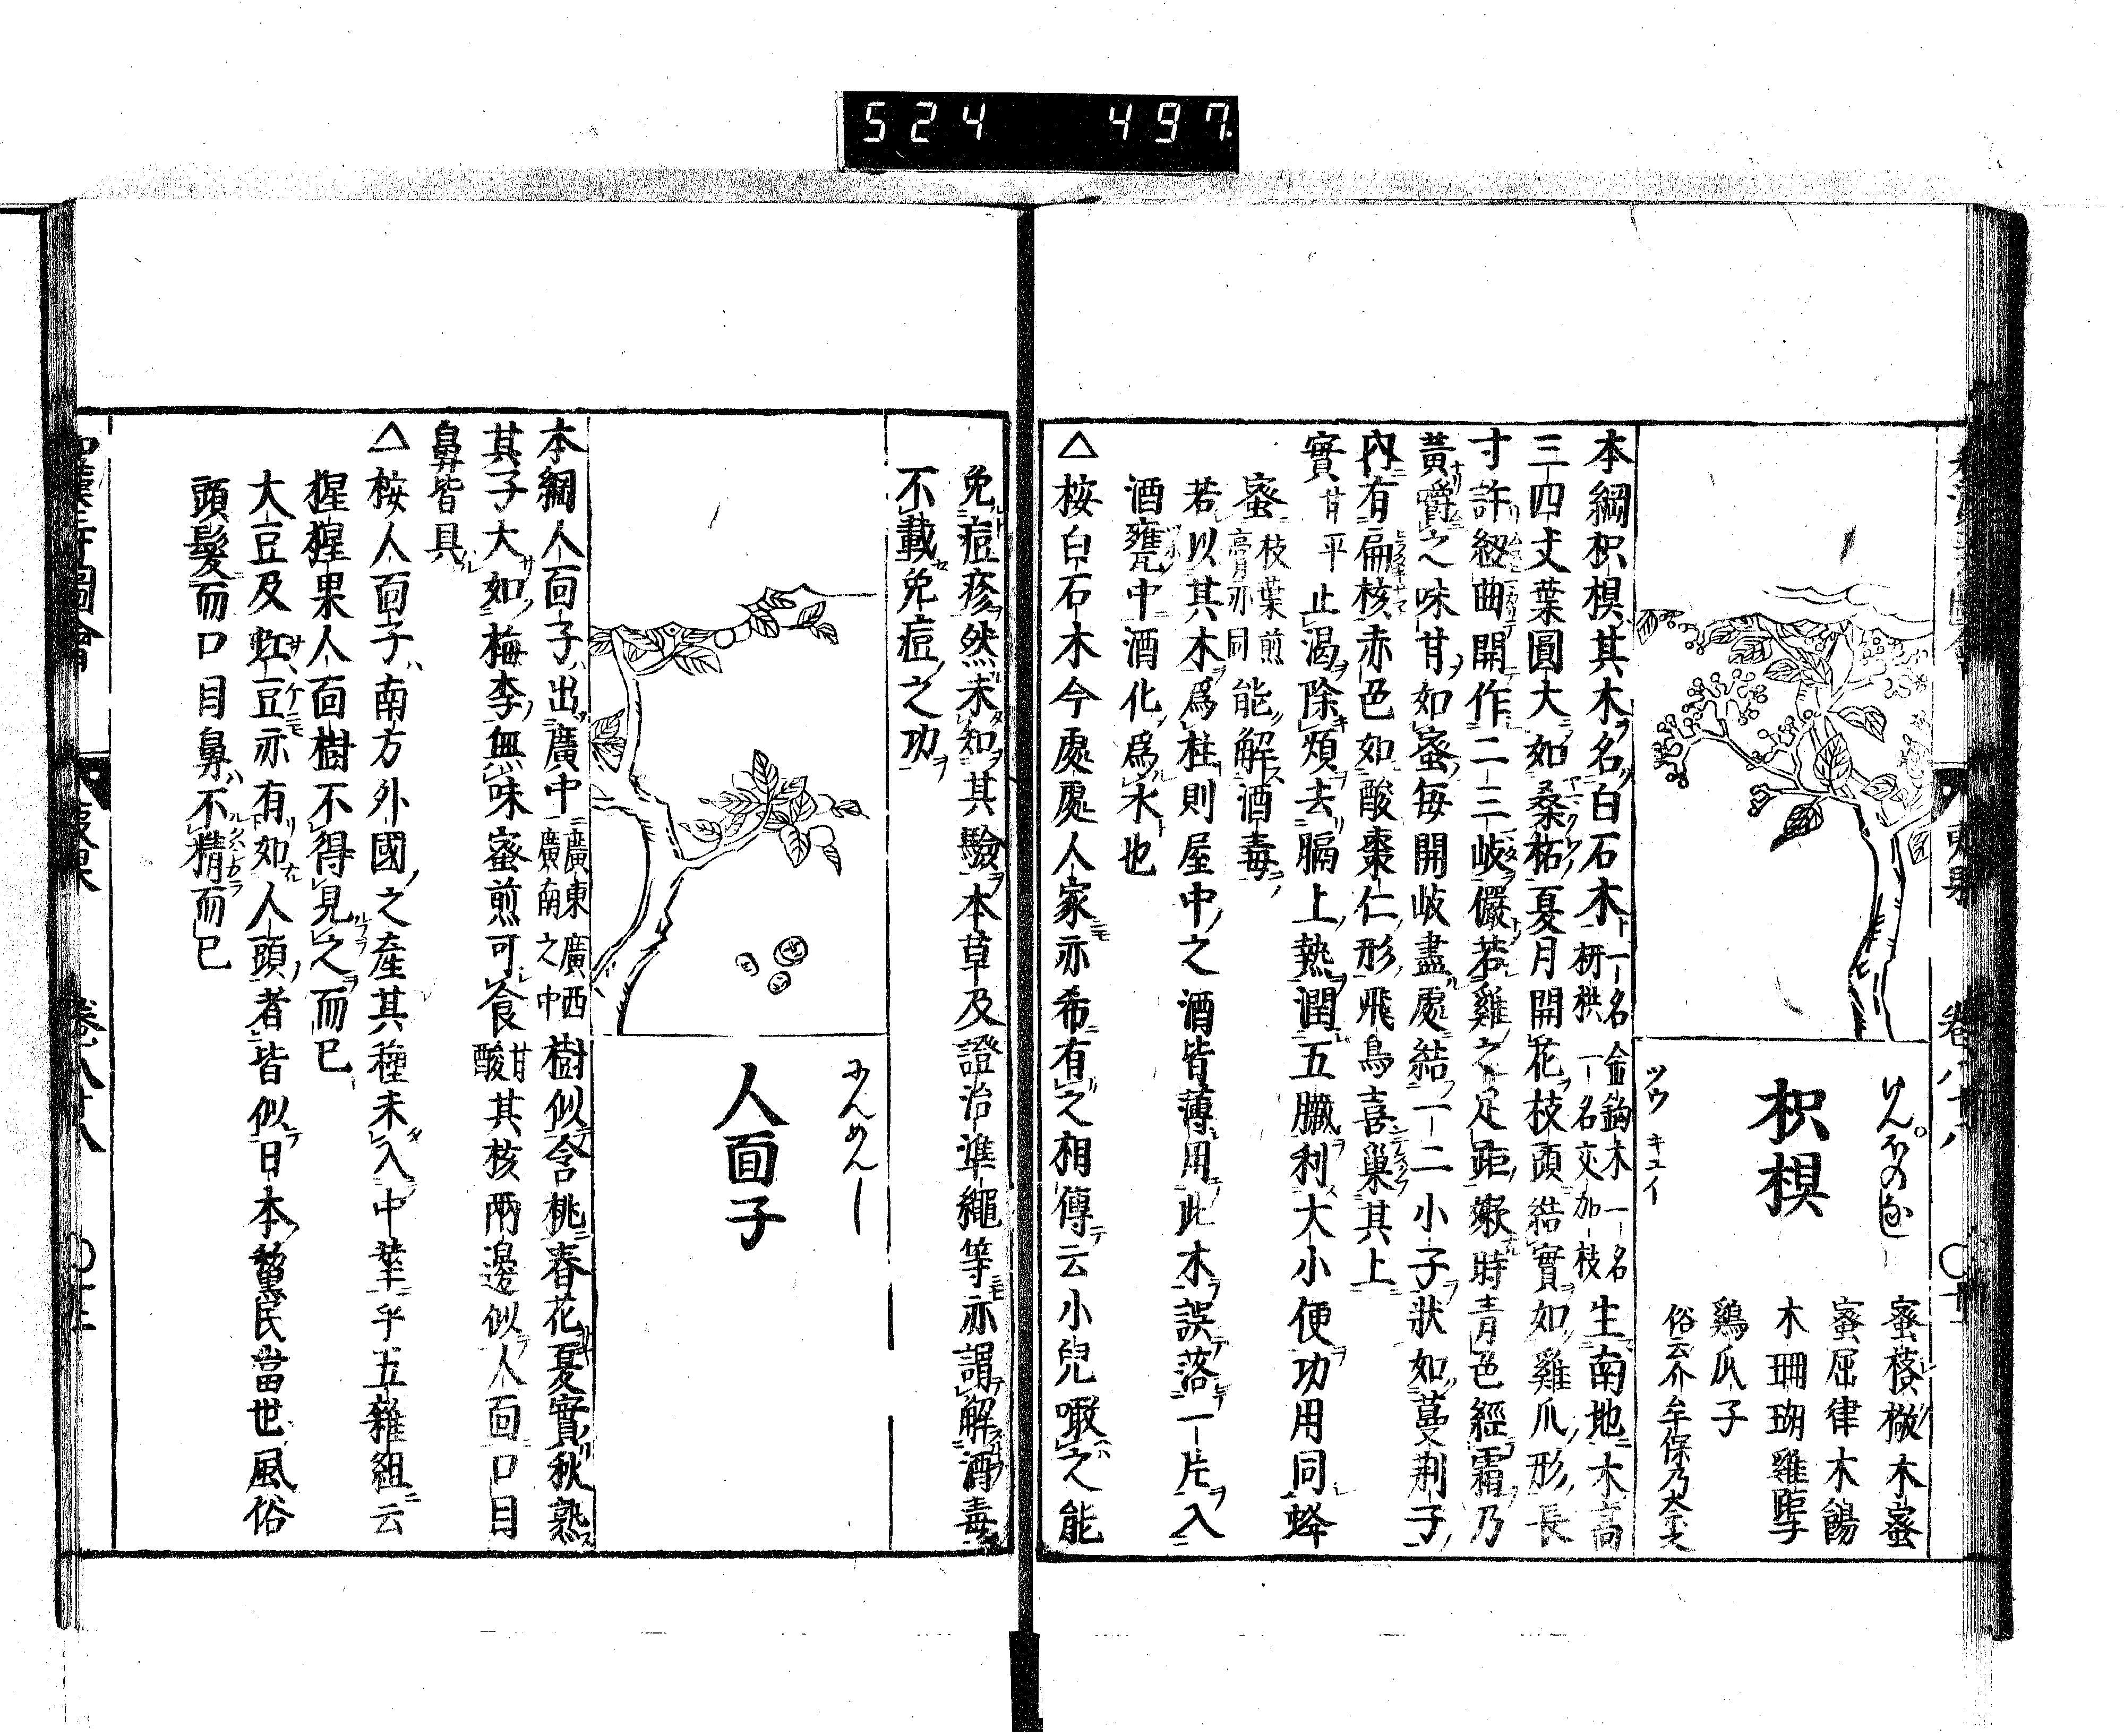 524 497
けんほのなし
枳椇
ツウ キユイ
蜜𣖌樹 木蜜
蜜屈律 木餳
木珊瑚 雞距子
鷄爪子
俗云介牟保乃奈之
本綱枳椇其木名白石木一名金鈎木一名枅栱一名交加枝生南地木高
三四丈葉圓大如桑柘夏月開花枝頭結實如雞爪形長
寸許紐曲開作二三岐儼若雞之足距嫩時青色經霜乃
黃嚼之味甘如蜜每開岐盡處結一二小子狀如蔓荆子
內有扁核赤色如酸棗仁形飛鳥喜巢其上
實甘平止渴除煩去膈上熱潤五臟利大小便功用同蜂
蜜枝葉煎膏亦同能解酒毒
若以其木爲柱則屋中之酒皆薄用此木誤落一片入
酒甕中酒化爲水也
△桉白石木今處處人家亦希有之相傳云小兒噉之能
免痘疹然未知其驗本草及證治準繩等亦謂解酒毒
不載免痘之功
人面子
本綱人面子出廣中廣東廣西廣南之中樹似含桃春花夏實秋熟
其子大如梅李無味蜜煎可食甘酸其核兩邊似人面口目
鼻皆具
△桉人面子南方外國之產其種未入中華乎五雜組云
猩猩果人面樹不得見之而已
大豆及豇豆亦有如人頭者皆似日本黧民當世風俗
頭髮而口目鼻不精而已